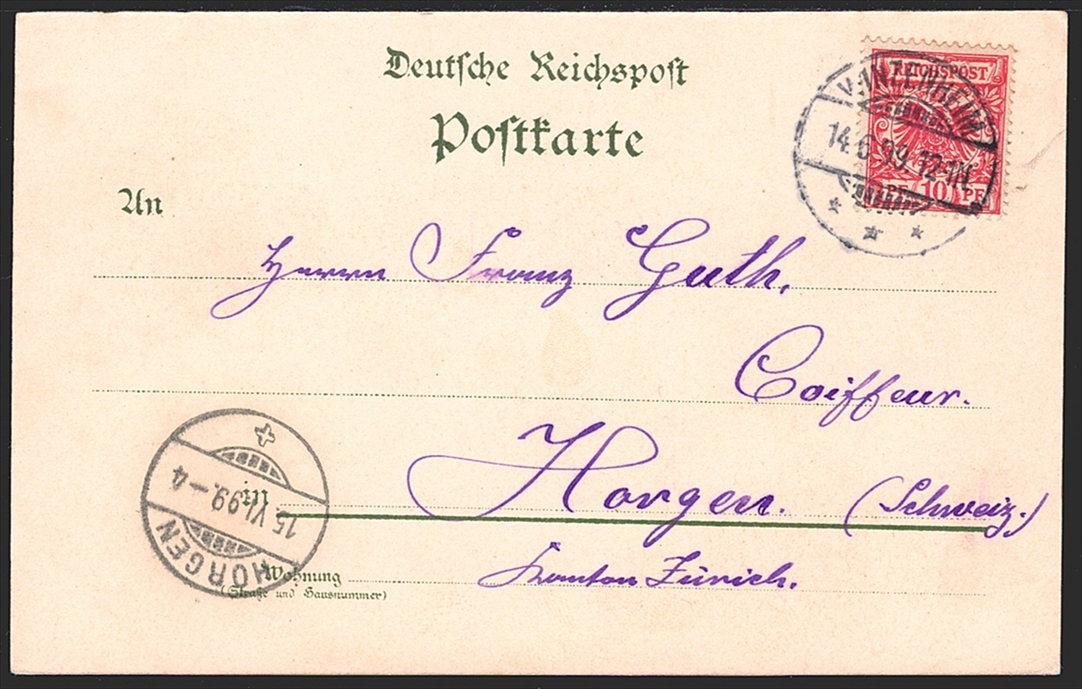 Deutsche Reichspost
Postkarte
REICHSPOST
PF 10 PF
14.6.99. 12-1N.
An
Herrn Franz Guth,
Coiffeur.
Horgen. (Schweiz.)
in
Kanton Zürich.
Wohnung
(Straße und Hausnummer)
HORGEN
15.VI.99.-4